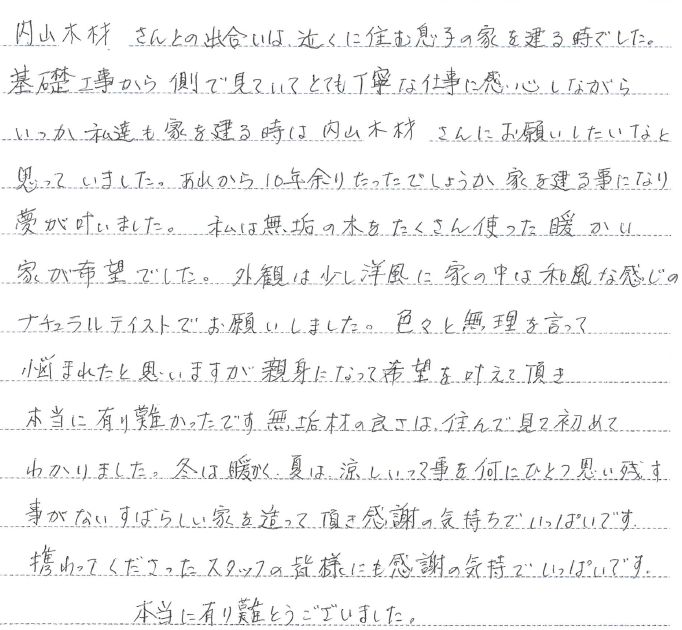 内山木材 さんとの出合いは、近くに住む息子の家を建る時でした。
基礎工事から側で見ていてとても丁寧な仕事に感心しながら
いつか私達も家を建る時は内山木材 さんにお願いしたいなと
思っていました。あれから10年余りたったでしょうか家を建る事になり
夢が叶いました。私は無垢の木をたくさん使った暖かい
家が希望でした。外観は少し洋風に家の中は和風な感じの
ナチュラルテイストでお願いしました。色々と無理を言って
悩まれたと思いますが親身になって希望を叶えて頂き
本当に有り難かったです無垢材の良さは、住んで見て初めて
わかりました。冬は暖かく、夏は、涼しいって事を何にひとつ思い残す
事がないすばらしい家を造って頂き感謝の気持ちでいっぱいです。
携わってくださったスタッフの皆様にも感謝の気持でいっぱいです。
本当に有り難とうございました。